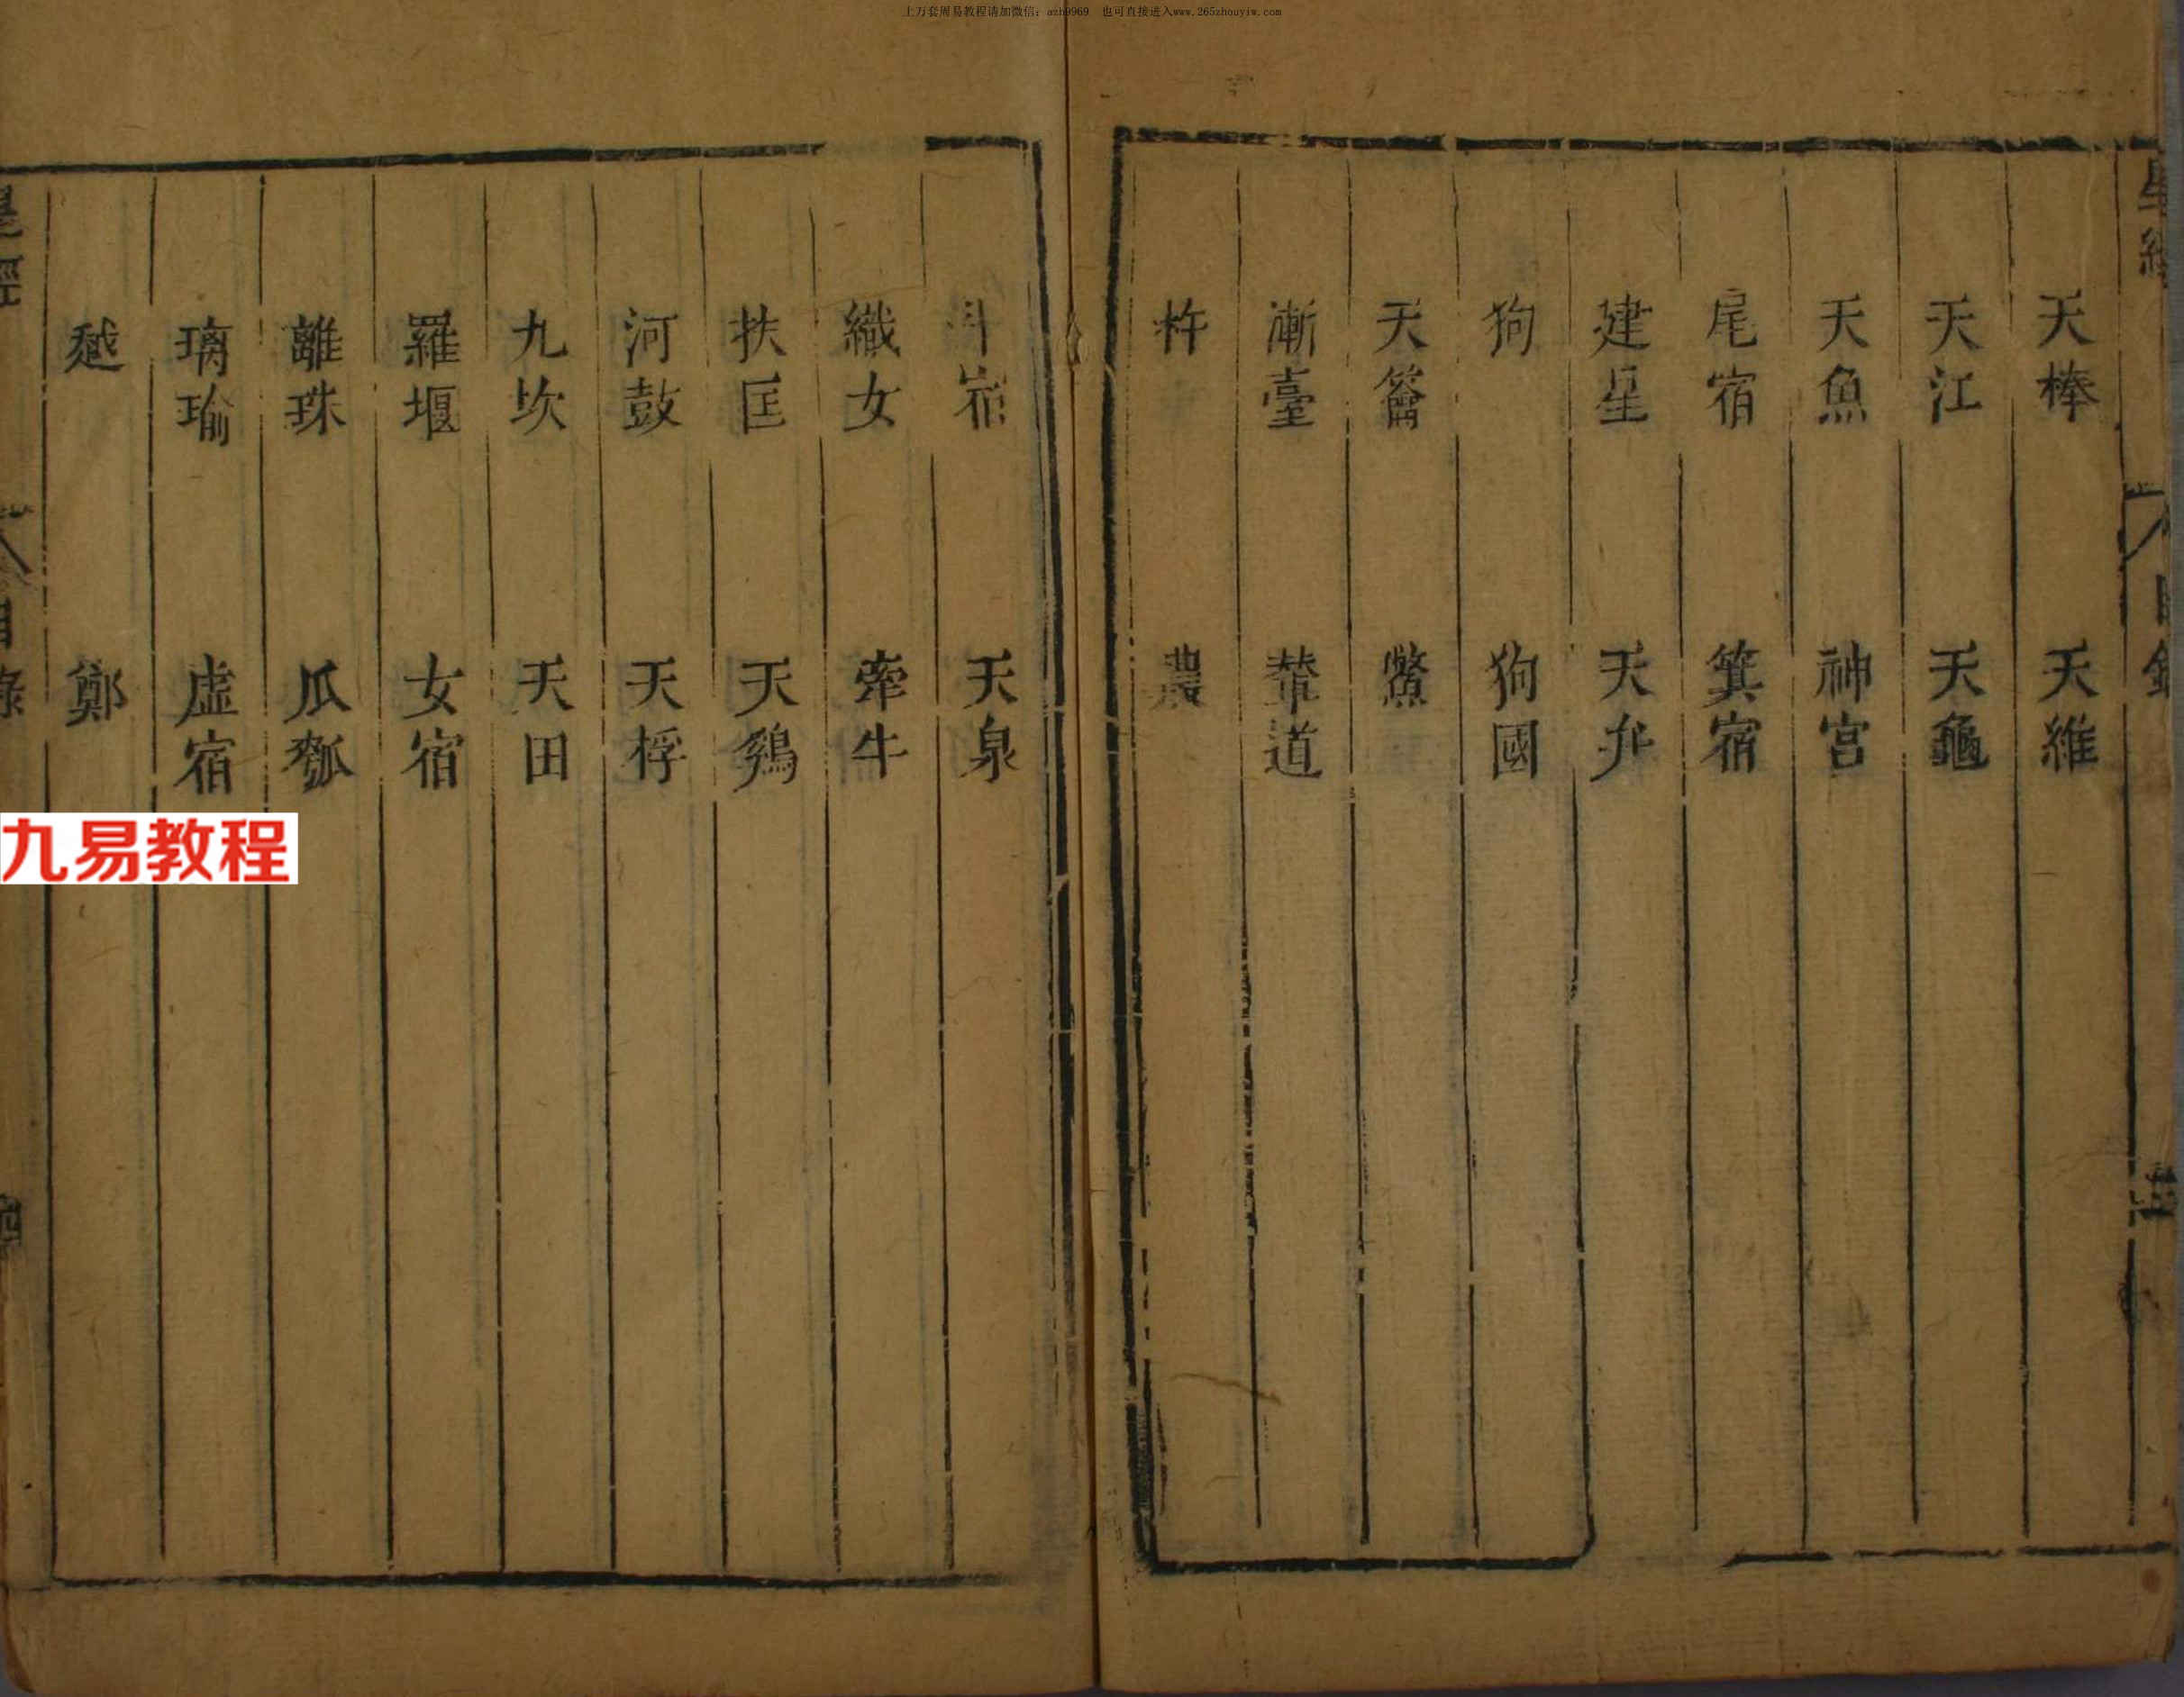 上万套周易教程请加微信：azh9969　也可直接进入www.265zhouyiw.com
星經
目錄
天棒　天維
天江　天龜
天魚　神宮
尾宿　箕宿
建星　天弁
狗　狗國
天籥　鱉
漸臺　輦道
杵　農
斗宿　天泉
織女　牽牛
扶匡　天鷄
河鼓　天桴
九坎　天田
羅堰　女宿
離珠　瓜瓠
璃瑜　虛宿
越　鄭
星經
目錄
四
九易教程